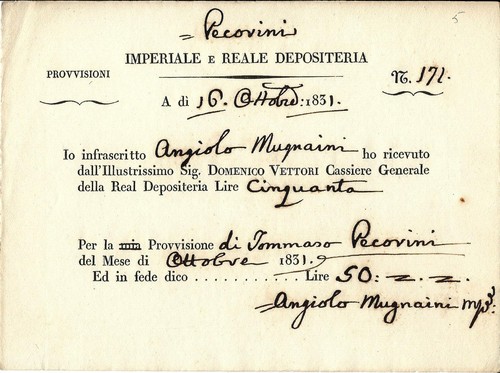 5
= Pecorini
IMPERIALE E REALE DEPOSITERIA
PROVVISIONI
N. 171.
A dì 16. Ottobre: 1831.
Io infrascritto Angiolo Mugnaini ho ricevuto
dall'Illustrissimo Sig. DOMENICO VETTORI Cassiere Generale
della Real Depositeria Lire Cinquanta
Per la mia Provvisione di Tommaso Pecorini
del Mese di Ottobre 1831.
Ed in fede dico . . . . . . . . . . . Lire 50: -. -.
= Angiolo Mugnaini mp: